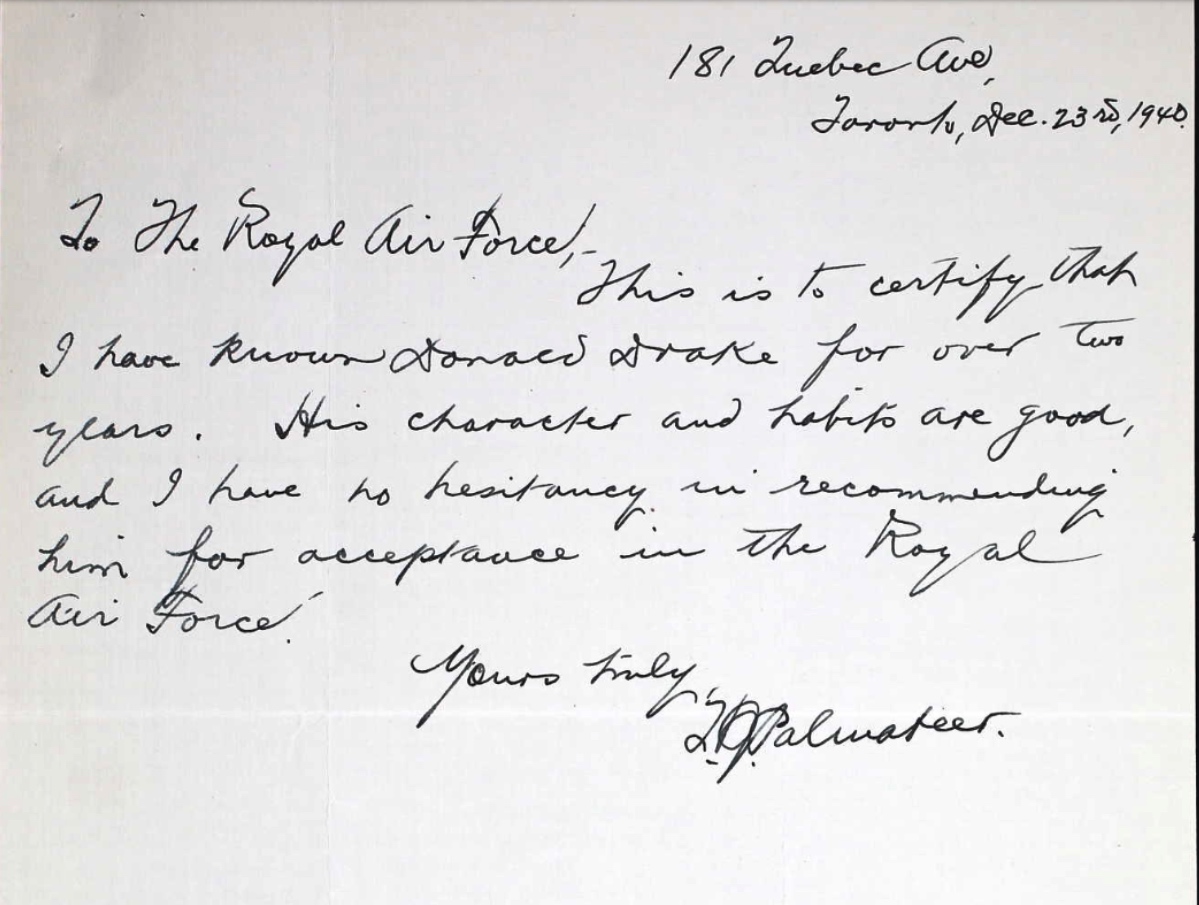 181 Quebec Ave,
Toronto, Dec. 23rd, 1940.
To The Royal Air Force,-
This is to certify that
I have known Donald Drake for over two
years. His character and habits are good,
and I have no hesitancy in recommending
him for acceptance in the Royal
Air Force.
Yours truly,
Palmateer.